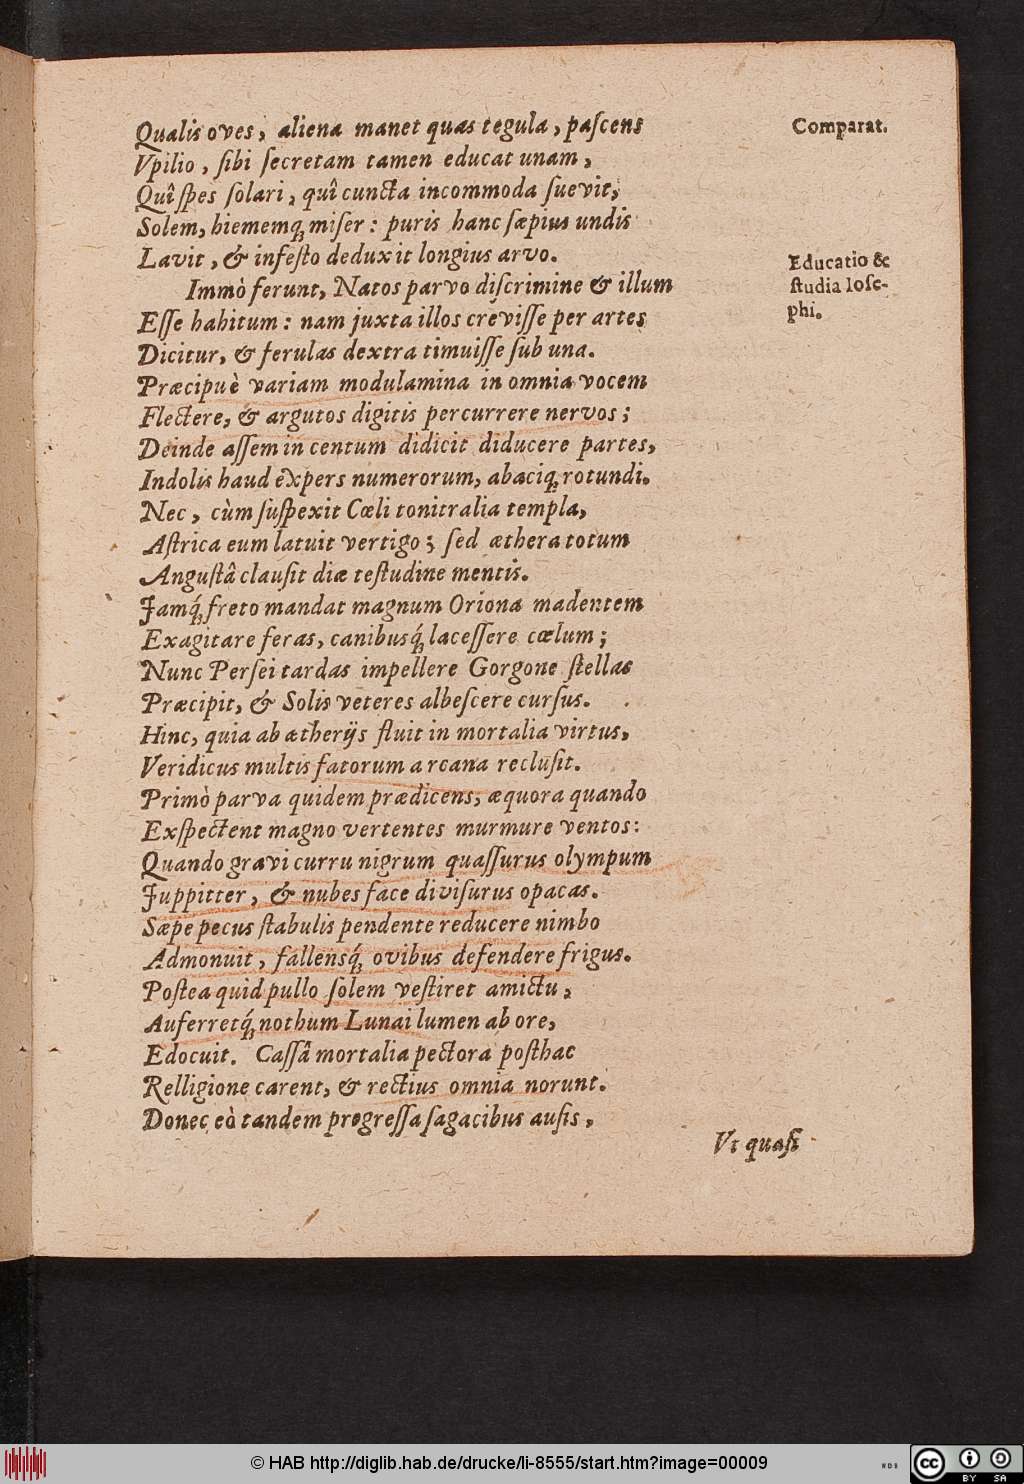 Qualis oves, aliena manet quas tegula, paſcens
Comparat.
Vpilio, ſibi ſecretam tamen educat unam,
Quî ſpes ſolari, quî cuncta incommoda ſuevit,
Solem, hiememq́; miſer: puris hanc ſæpius undis
Lavit, & infeſto deduxit longius arvo.
Educatio &
ſtudia Ioſe-
phi.
Immò ferunt, Natos parvo diſcrimine & illum
Eſſe habitum: nam juxta illos creviſſe per artes
Dicitur, & ferulas dextra timuiſſe ſub una.
Præcipuè variam modulamina in omnia vocem
Flectere, & argutos digitis percurrere nervos;
Deinde aſſem in centum didicit diducere partes,
Indolis haud expers numerorum, abaciq; rotundi.
Nec, cùm ſuſpexit Cœli tonitralia templa,
Aſtrica eum latuit vertigo; ſed æthera totum
Anguſtâ clauſit diæ teſtudine mentis.
Jamq́; freto mandat magnum Oriona madentem
Exagitare feras, canibusq́; laceſſere cœlum;
Nunc Perſei tardas impellere Gorgone ſtellas
Præcipit, & Solis veteres albeſcere curſus.
Hinc, quia ab ætherijs fluit in mortalia virtus,
Veridicus multis fatorum arcana recluſit.
Primò parva quidem prædicens, æquora quando
Exſpectent magno vertentes murmure ventos:
Quando gravi curru nigrum quaſſurus olympum
Juppitter, & nubes face diviſurus opacas.
Sæpe pecus ſtabulis pendente reducere nimbo
Admonuit, fallensq́; ovibus defendere frigus.
Poſtea quid pullo ſolem veſtiret amictu,
Auferretq́; nothum Lunai lumen ab ore,
Edocuit. Caſſâ mortalia pectora poſthac
Relligione carent, & rectius omnia norunt.
Donec eò tandem progreſſa ſagacibus auſis,
Vt quaſi
© HAB http://diglib.hab.de/drucke/li-8555/start.htm?image=00009
WDB
cc BY SA